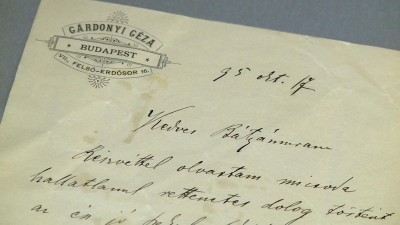 GÁRDONYI GÉZA
BUDAPEST
VII. FELSŐ-ERDŐSOR 16.
95 okt. 17
Kedves Bátyámuram
olvastam micsoda
hallatlanul rettenetes dolog történt
az én jó